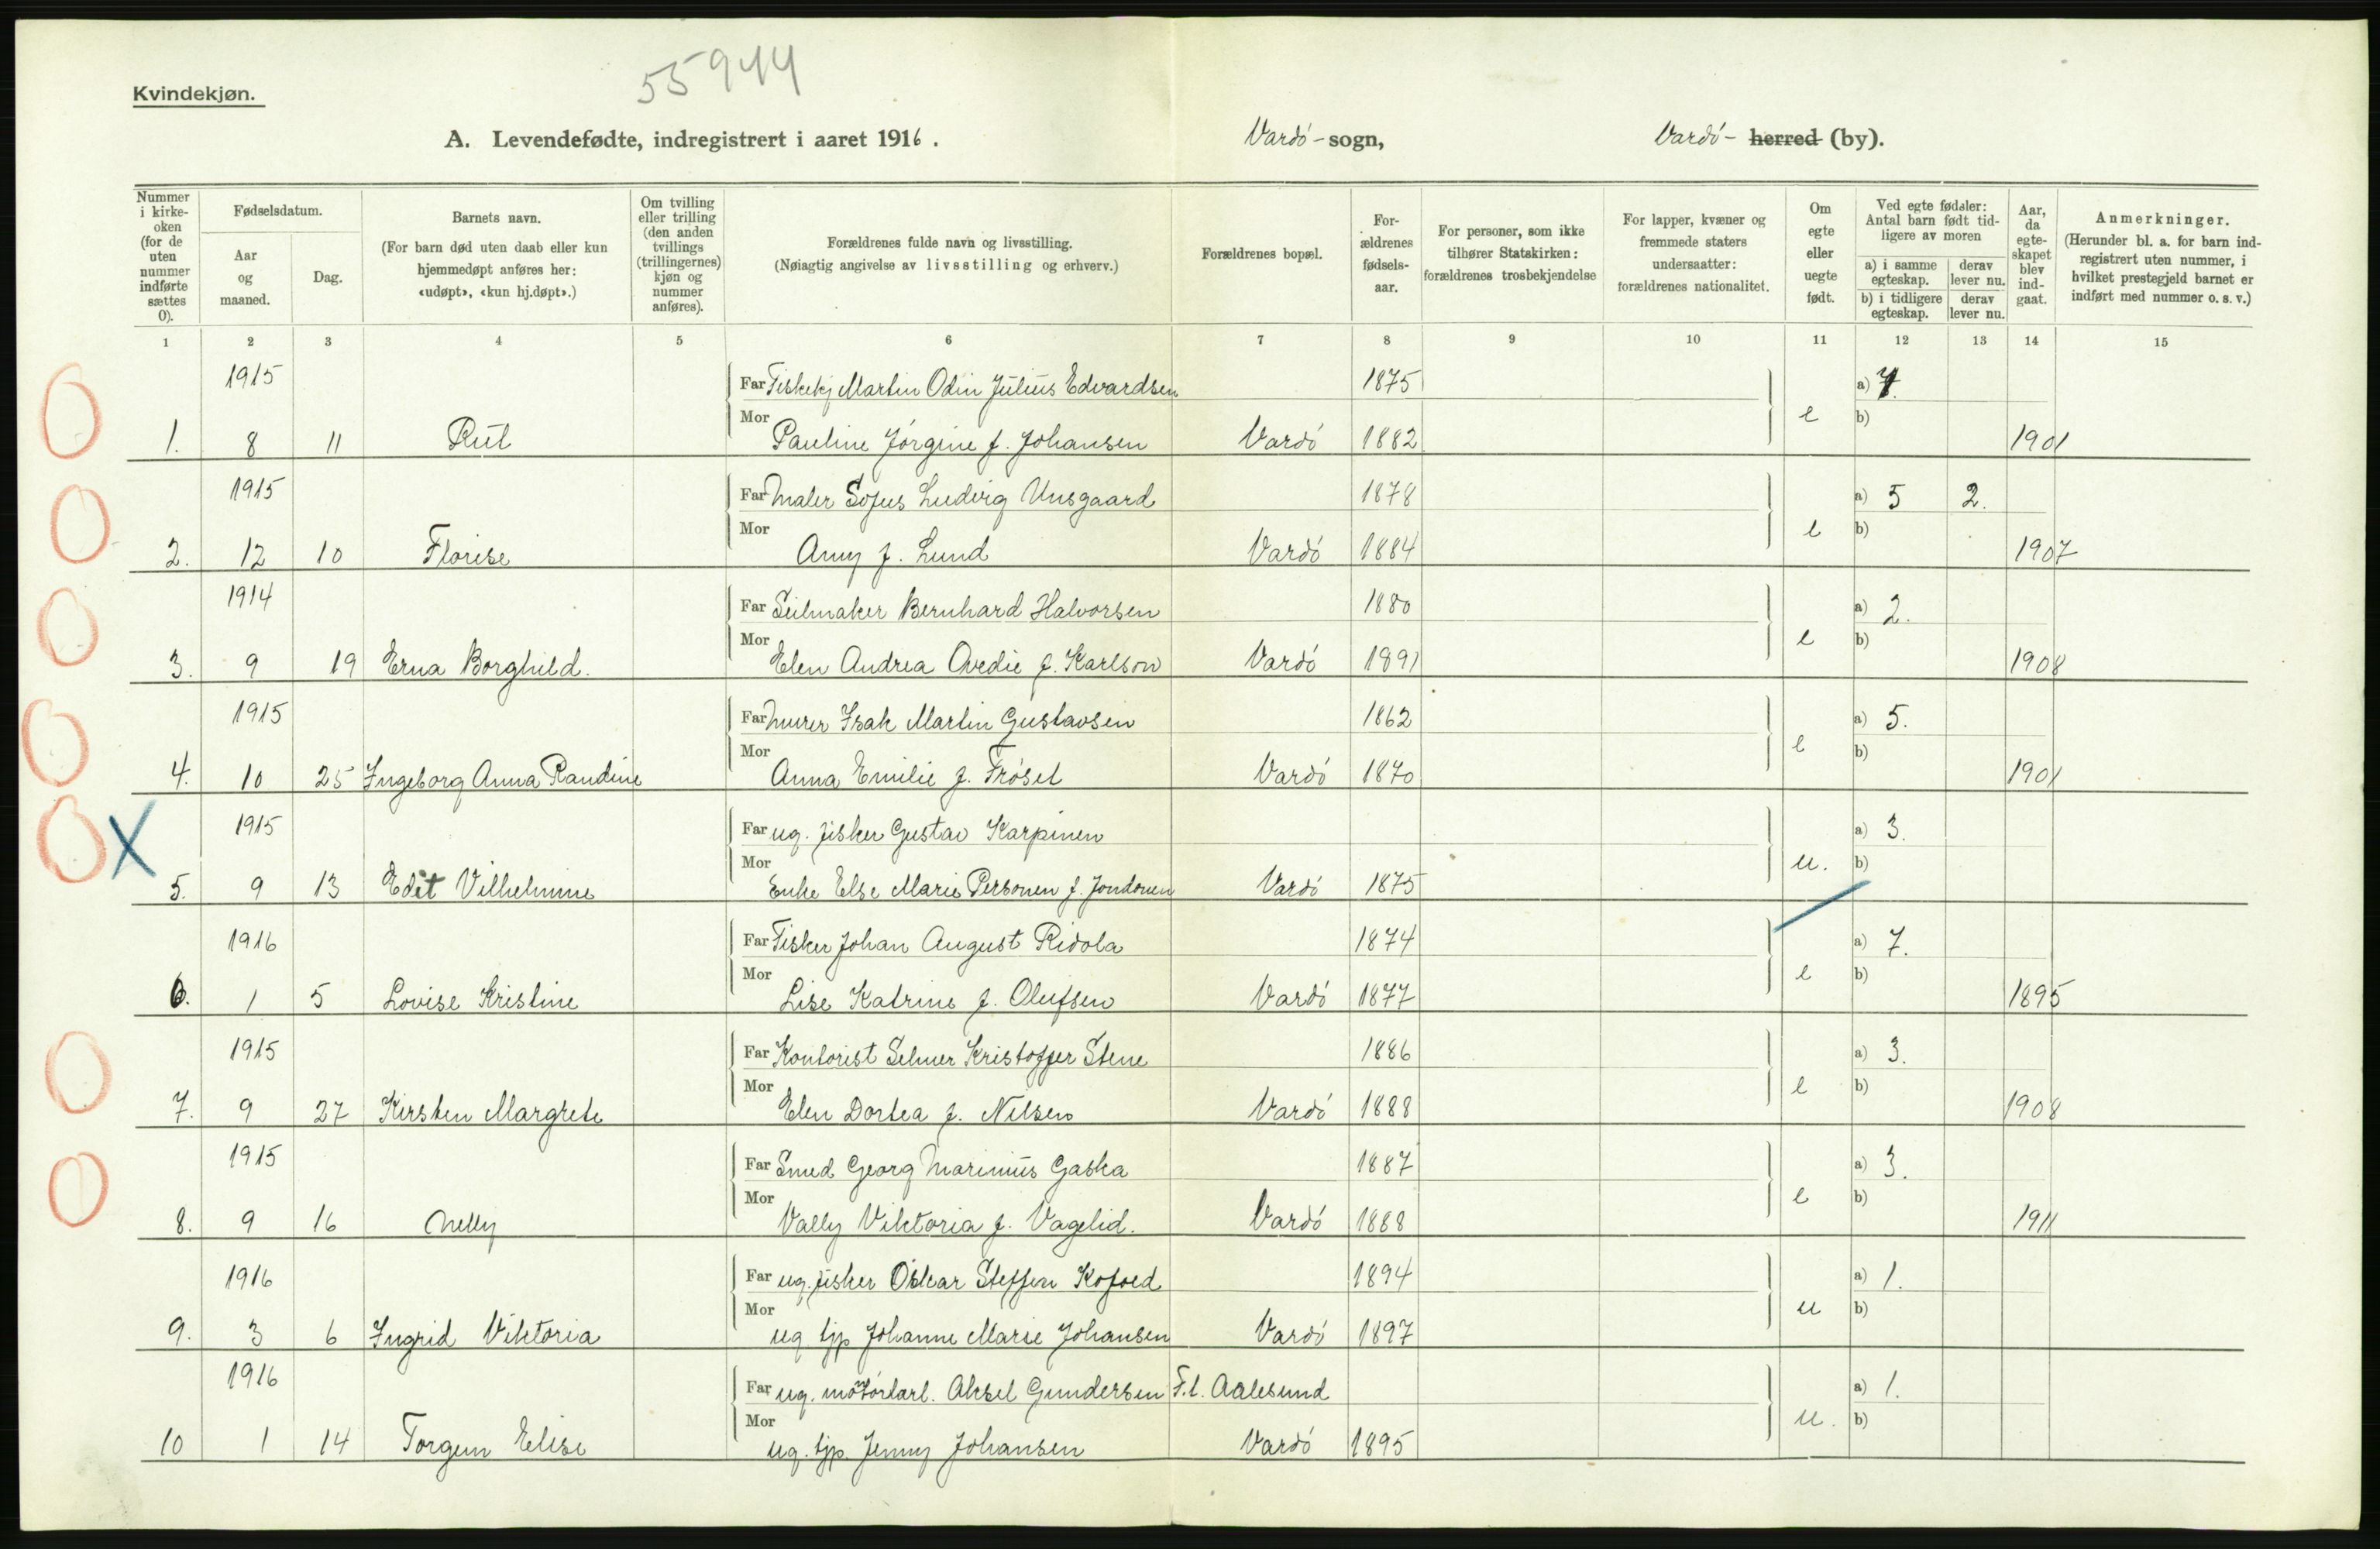 55944
Kvindekjøn.
A. Levendefødte, indregistrert i aaret 1916. Vardö - sogn, Vardö - herred (by).
Nummer i kirke-oken (for de uten nummer indførte sættes 0).
Fødselsdatum.
Aar og maaned.
Dag.
Barnets navn.
(For barn død uten daab eller kun hjemmedøpt anføres her: «udøpt», «kun hj.døpt».)
Om tvilling eller trilling (den anden tvillings (trillingernes) kjøn og nummer anføres).
Forældrenes fulde navn og livsstilling.
(Nøiagtig angivelse av livsstilling og erhverv.)
Forældrenes bopæl.
For-ældrenes fødsels-aar.
For personer, som ikke tilhører Statskirken: forældrenes trosbekjendelse
For lapper, kvæner og fremmede staters undersaatter: forældrenes nationalitet.
Om egte eller uegte født.
Ved egte fødsler: Antal barn født tid-ligere av moren
a) i samme egteskap. derav lever nu.
b) i tidligere egteskap. derav lever nu.
Aar, da egte-skapet blev ind-gaat.
Anmerkninger.
(Herunder bl. a. for barn ind-registrert uten nummer, i hvilket prestegjeld barnet er indført med nummer o. s. v.)
1 2 3 4 5 6 7 8 9 10 11 12 13 14 15
1915 Far Fiskekj Martin Odin Julius Edvardsen 1875 a) 7.
1. 8 11 Rut Mor Pauline Jörgine f. Johansen Vardö 1882 e b) 1901
1915 Far Maler Sofus Ludvig Unsgaard 1878 a) 5 2.
2. 12 10 Florise Mor Anny f. Lund Vardö 1884 e b) 1907
1914 Far Seilmaker Bernhard Halvorsen 1880 a) 2.
3. 9 19 Erna Borghild. Mor Elen Andrea Ovedie f. Karlson Vardö 1891 e b) 1908
1915 Far Murer Isak Martin Gustavsen 1862 a) 5.
4. 10 25 Ingeborg Anna Randine Mor Anna Emilie f. Fröset Vardö 1870 e b) 1901
1915 Far ug. fisker Gustav Karpinen a) 3.
5. 9 13 Edit Vilhelmine Mor Enke Else Marie Personen f. Jondonen Vardö 1875 u. b)
1916 Far Fisker Johan August Ridola 1874 a) 7.
6. 1 5 Lovise Kristine Mor Lise Katrine f. Olufsen Vardö 1877 e b) 1895
1915 Far Kontorist Selmer Kristoffer Stene 1886 a) 3.
7. 9 27 Kirsten Margrete Mor Elen Dortea f. Nilsen Vardö 1888 e b) 1908
1915 Far Smed Georg Marinius Gaska 1887 a) 3.
8. 9 16 Nelly Mor Vally Viktoria f. Vagelid. Vardö 1888 e b) 1911
1916 Far ug. fisker Oskar Steffen Kofoed 1894 a) 1.
9. 3 6 Ingrid Viktoria Mor ug tjp Johanne Marie Johansen Vardö 1897 u b)
1916 Far ug. Aksel Gundersen F.t. Aalesund a) 1.
10 1 14 Torgun Elise Mor ug. tjp. Jenny Johansen Vardö 1895 u. b)